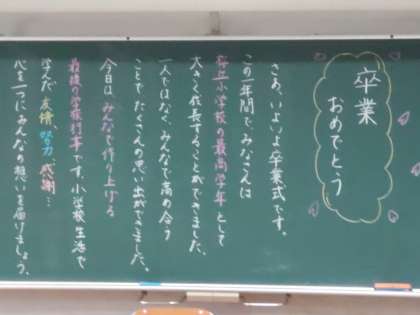 卒業
おめでとう
さあ、いよいよ卒業式です。
この一年間でみなさんは
小学校の最高学年として
大きく成長することができました。
一人ではなく、みんなで高め合う
ことで、たくさんの思い出ができました。
今日は、みんなで作り上げる
最後の学校行事です。小学校生活で
学んだ 友情、努力、感謝…
心を一つに、みんなの想いを届けましょう。